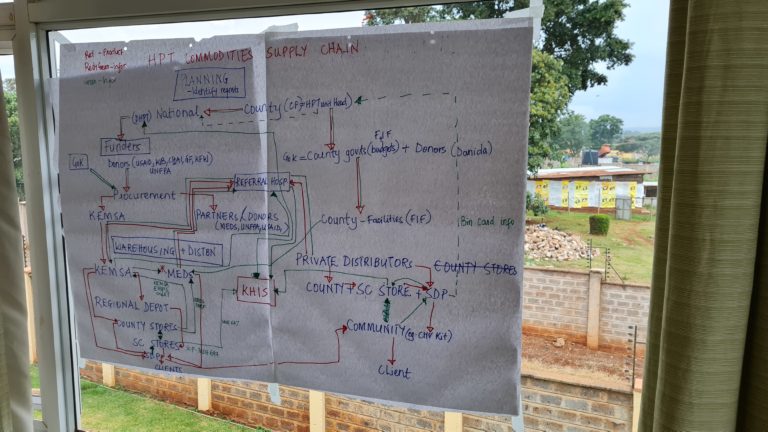 Red - Product
HPT COMMODITIES SUPPLY CHAIN
PLANNING
- Identify reqmts
(DHPT) National
County (CP = HPT unit Head)
Funders
Donors (USAID, WB, CHAI, GF, KFW)
UNFPA
FIF
GoK = County govts (budgets) + Donors (Danida)
GoK
Procurement
REFERRAL HOSP
KEMSA
PARTNERS / DONORS
(MEDS, UNFPA, USAID)
County - Facilities (FIF)
Bin card info
WAREHOUSING + DISTBN
KEMSA
MEDS
PRIVATE DISTRIBUTORS
COUNTY STORES
KHIS
COUNTY + SC STORE + SDP
REGIONAL DEPOT
COUNTY STORES
SC STORES
SDP
CLIENTS
COMMUNITY (eg. CHV Kit)
Client